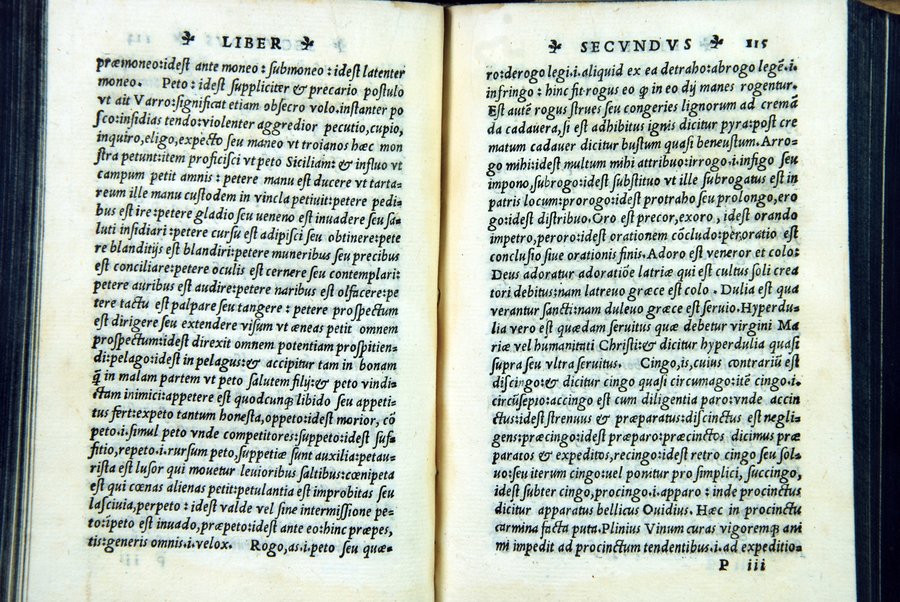 LIBER
præmoneo:idest ante moneo:submoneo:idest latenter
moneo. Peto:idest suppliciter & precario postulo
vt ait Varro:significat etiam obsecro volo.instanter po
sco:insidias tendo:violenter aggredior pecutio,cupio,
inquiro,eligo,expecto seu maneo vt troianos hæc mon
stra petunt:item proficisci vt peto Siciliam:& influo vt
campum petit amnis:petere manu est ducere vt tarta-
reum ille manu custodem in vincla petiuit:petere pedi-
bus est ire:petere gladio seu ueneno est inuadere seu sa-
luti insidiari:petere cursu est adipisci seu obtinere:pete
re blanditijs est blandiri:petere muneribus seu precibus
est conciliare:petere oculis est cernere seu contemplari:
petere auribus est audire:petere naribus est olfacere:pe
tere tactu est palpare seu tangere:petere prospectum
est dirigere seu extendere visum vt æneas petit omnem
prospectum:idest direxit omnem potentiam prospitien-
di:pelago:idest in pelagus:& accipitur tam in bonam
q̃ in malam partem vt peto salutem filij:& peto vindi-
ctam inimici:appetere est quodcunq; libido seu appeti-
tus fert:expeto tantum honesta,oppeto:idest morior, cõ
peto.i.simul peto vnde competitores:suppeto:idest suf-
fitio,repeto.i.rursum peto,suppetiæ sunt auxilia:petau-
rista est lusor qui mouetur leuioribus saltibus:cœnipeta
est qui cœnas alienas petit:petulantia est improbitas seu
lasciuia,perpeto:idest valde vel sine intermissione pe-
to:ĩpeto est inuado,præpeto:idest ante eo:hinc præpes,
tis:generis omnis.i.velox. Rogo,as.i.peto seu quæ-
SECVNDVS 115
ro:derogo legi.i.aliquid ex ea detraho:abrogo legẽ.i.
infringo:hinc fit rogus eo ꝙ in eo dij manes rogentur.
Est autẽ rogus strues seu congeries lignorum ad cremã
da cadauera,si est adhibitus ignis dicitur pyra:post cre
matum cadauer dicitur bustum quasi beneustum.Arro-
go mihi:idest multum mihi attribuo:irrogo.i.infigo seu
impono,subrogo:idest substituo vt ille subrogatus est in
patris locum:prorogo:idest protraho seu prolongo,ero
go:idest distribuo.Oro est precor,exoro,idest orando
impetro,peroro:idest orationem cõcludo:peroratio est
conclusio siue orationis finis.Adoro est veneror et colo:
Deus adoratur adoratiõe latriæ qui est cultus soli crea
tori debitus:nam latreuo græce est colo. Dulia est qua
verantur sancti:nam duleuo græce est seruio.Hyperdu-
lia vero est quædam seruitus quæ debetur virgini Ma
riæ vel humanitati Christi:& dicitur hyperdulia quasi
supra seu vltra seruitus. Cingo,is,cuius contrariũ est
discingo:& dicitur cingo quasi circumago:itẽ cingo.i.
circũsepio:accingo est cum diligentia paro:vnde accin
ctus:idest strenuus & præparatus:discinctus est negli-
gens:præcingo:idest præparo:præcinctos dicimus præ
paratos & expeditos,recingo:idest retro cingo seu sol-
uo:seu iterum cingo:uel ponitur pro simplici, succingo,
idest subter cingo,procingo.i.apparo:inde procinctus
dicitur apparatus bellicus Ouidius. Hæc in procinctu
carmina facta puta.Plinius Vinum curas vigoremq; ani
mi impedit ad procinctum tendentibus.i.ad expeditio-
P iii